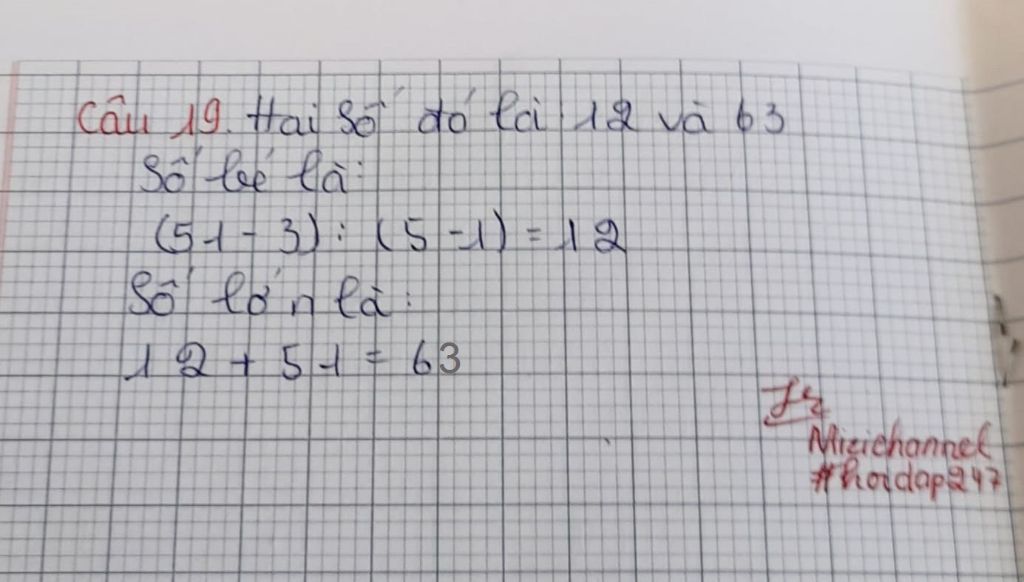 Câu 19. Hai số đó là 12 và 63
Số bé là:
(51 - 3) : (5 - 1) = 12
Số lớn là:
12 + 51 = 63
Mizichannel
#hoidap247